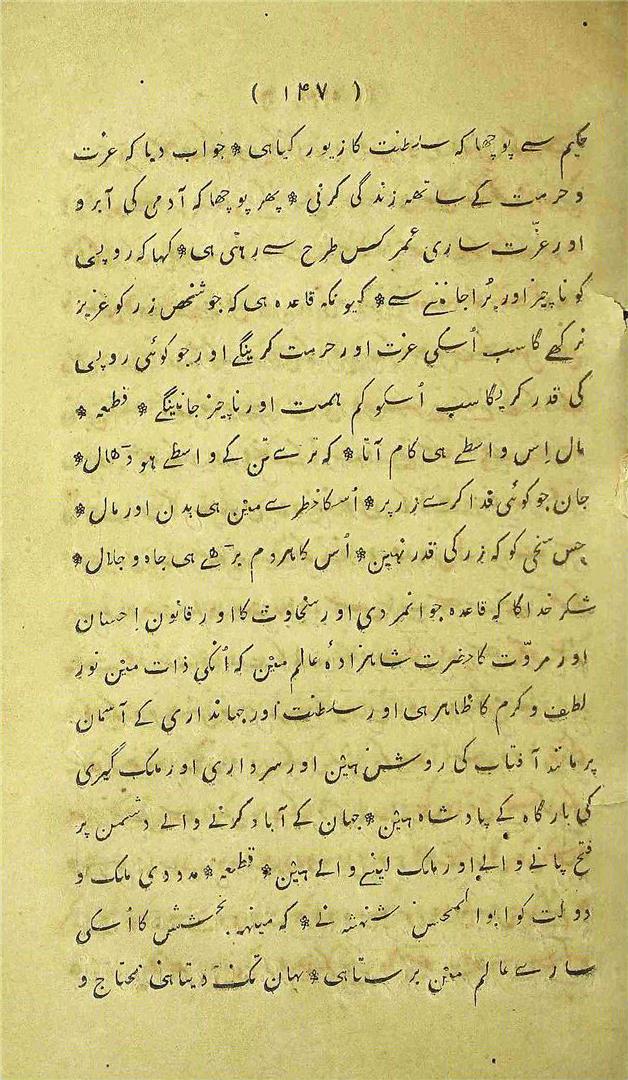 ( ۱۴۷ )
حکیم سے پوچھا کہ سلطنت کا زیور کیا ہی * جواب دیا کہ عزت
و حرمت کے ساتھہ زندگی کرنی * پھر پوچھا کہ آدمی کی آبرو
اور عزّت ساری عمر کس طرح سے رہتی ہی * کہا کہ روپی
کو ناچیز اور بُرا جاننے سے * کیونکہ قاعدہ ہی کہ جو شخص زر کو عزیز
نرکھے گا سب اُسکی عزت اور حرمت کرینگے اور جو کوئی روپی
کی قدر کریگا سب اُسکو کم ہمت اور ناچیز جانینگے * قطعہ *
مال اِس واسطے ہی کام آتا * کہ ترے تن کے واسطے ہو ڈھال *
جان جو کوئی فدا کرے زر پر * اُسکا خطرے مین ہی بدن اور مال *
جس سخی کو کہ زر کی قدر نہین * اُس کا ہر دم بڑھے ہی جاہ و جلال *
شکر خدا کا کہ قاعدہ جوانمردی اور سخاوت کا اور قانون اِحسان
اور مروّت کا حضرت شاہزادۂ عالم مین کہ اُنکی ذات مین نور
لطف و کرم کا ظاہر ہی اور سلطنت اور جہانداری کے آسمان
پر مانند آفتاب کی روشن ہین اور سرداری اور ملک گیری
کی بارگاہ کے پادشاہ ہین * جہان کے آباد کرنے والے دشمن پر
فتح پانے والے اور ملک لینے والے ہین * قطعہ * مدد دی ملک و
دولت کو ابوالمحسن شہنشہ نے * کہ مینہہ بخشش کا اُسکی
سارے عالم مین برستا ہی * یہان تک دیتا ہی محتاج و